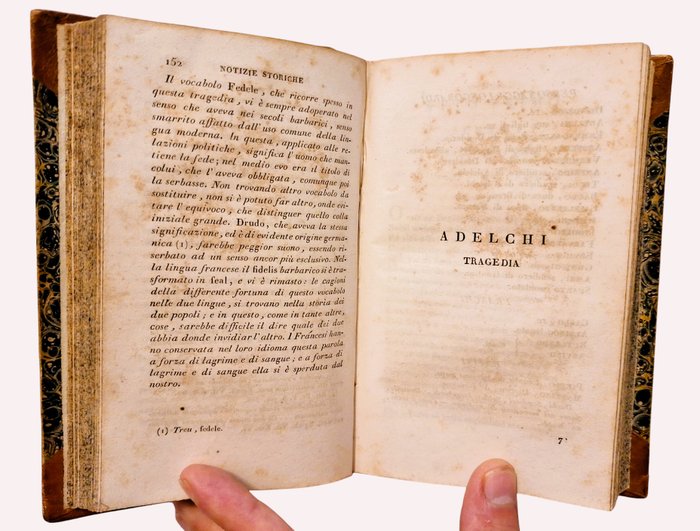 152
NOTIZIE STORICHE
Il vocabolo Fedele, che ricorre spesso in
questa tragedia, vi è sempre adoperato nel
senso che aveva nei secoli barbarici, senso
smarrito affatto dall'uso comune della lin-
gua moderna. In questa, applicato alle re-
lazioni politiche, significa l'uomo che man-
tiene la fede; nel medio evo era il titolo di
colui, che l'aveva obbligata, comunque poi
la serbasse. Non trovando altro vocabolo da
sostituire, non si è potuto far altro, onde evi-
tare l'equivoco, che distinguer quello colla
iniziale grande. Drudo, che aveva la stessa
significazione, ed è di evidente origine germa-
nica (1), farebbe peggior suono, essendo ri-
serbato ad un senso ancor più esclusivo. Nel-
la lingua francese il fidelis barbarico si è tra-
sformato in feal, e vi è rimasto: le cagioni
della differente fortuna di questo vocabolo
nelle due lingue, si trovano nella storia dei
due popoli; e in questo, come in tante altre,
cose, sarebbe difficile il dire quale dei due
abbia donde invidiar l'altro. I Francesi han-
no conservata nel loro idioma questa parola
a forza di lagrime e di sangue; e a forza di
lagrime e di sangue ella si è sperduta dal
nostro.
(1) Treu, fedele.
ADELCHI
TRAGEDIA
7